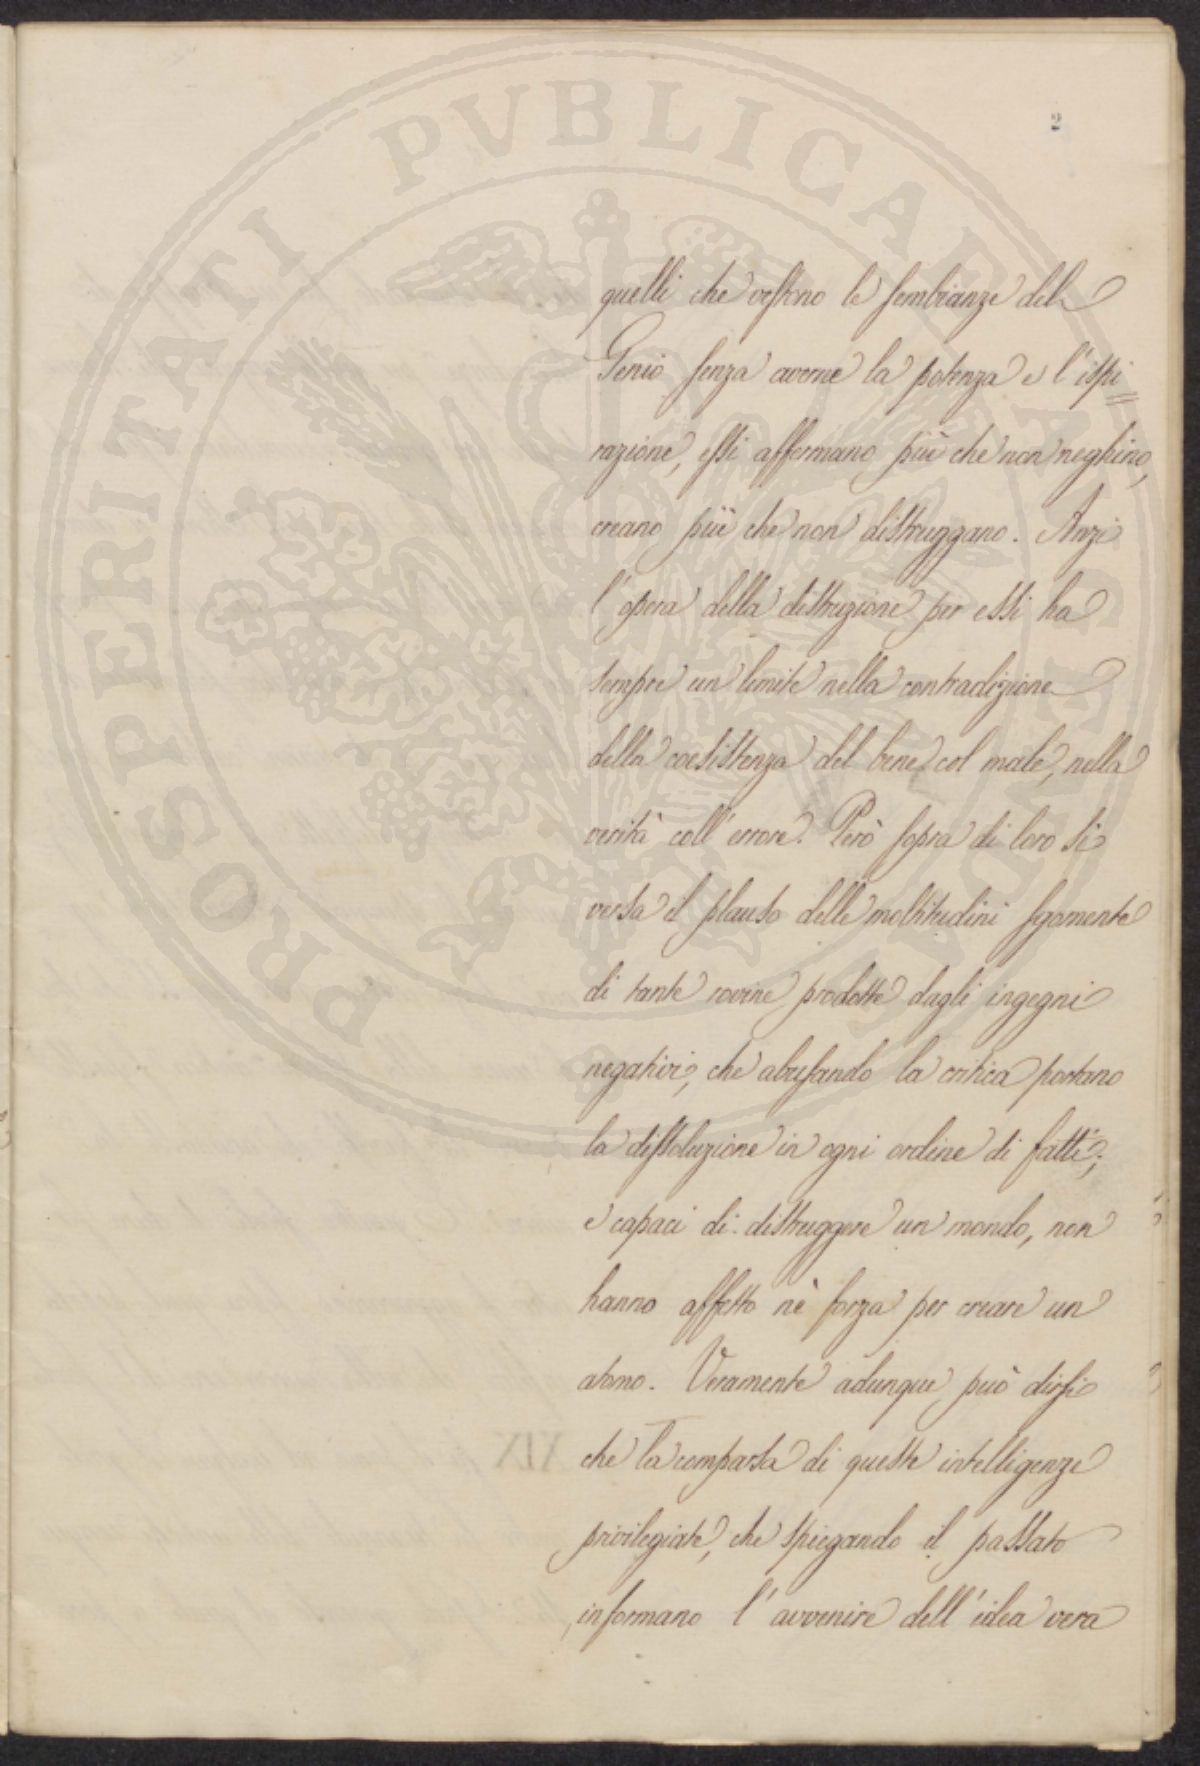 2
PROSPERITATI PVBLICAE
quelli che vestono le sembianze del
Genio senza averne la potenza e l'ispi=
razione, essi affermano più che non neghino,
creano più che non distruggano. Anzi
l'opera della distruzione per essi ha
sempre un limite nella contradizione
della coesistenza del bene col male, nella
verità coll'errore. Però sopra di loro si
versa il plauso delle moltitudini sgomente
di tante rovine prodotte dagli ingegni
negativi, che abusando la critica portano
la dissoluzione in ogni ordine di fatti;
e capaci di distruggere un mondo, non
hanno affetto nè forza per creare un
atomo. Veramente adunque può dirsi
che la comparsa di queste intelligenze
privilegiate, che spiegando il passato
informano l'avvenire dell'idea vera